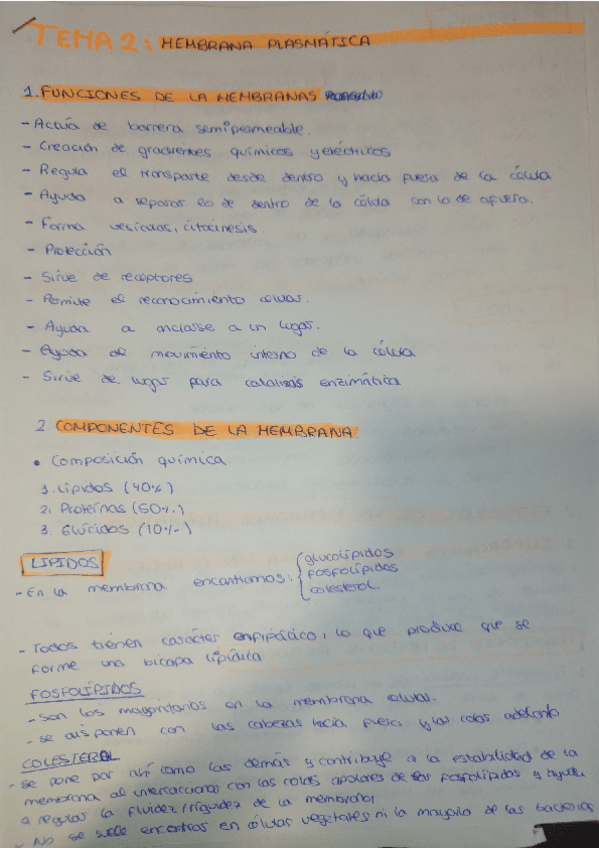 TEMA 2: MEMBRANA PLASMÁTICA
1. FUNCIONES DE LA MEMBRANAS
- Actúa de barrera semipermeable.
- Creación de gradientes químicos y eléctricos
- Regula el transporte desde dentro y hacia fuera de la célula
- Ayuda a separar lo de dentro de la célula con lo de afuera.
- Forma vesículas, citocinesis.
- Protección
- Sirve de receptores
- Permite el reconocimiento celular.
- Ayuda a anclarse a un lugar.
- Ayuda al movimiento interno de la célula
- Sirve de lugar para catálisis enzimática
2. COMPONENTES DE LA MEMBRANA
• Composición química
1. Lípidos (40%)
2. Proteínas (50%)
3. Glúcidos (10%)
LÍPIDOS
- En la membrana encontramos:
glucolípidos
fosfolípidos
colesterol.
- Todos tienen carácter anfipático, lo que produce que se
forme una bicapa lipídica
FOSFOLÍPIDOS
- Son los mayoritarios en la membrana celular.
- se disponen con las cabezas hacia fuera y las colas adentro
COLESTEROL
- se pone por ahí como las demás y contribuye a la estabilidad de la
membrana al interaccionar con las colas apolares de los fosfolípidos y ayuda
a regular la fluidez/rigidez de la membrana
- No se suele encontrar en células vegetales ni la mayoría de las bacterias